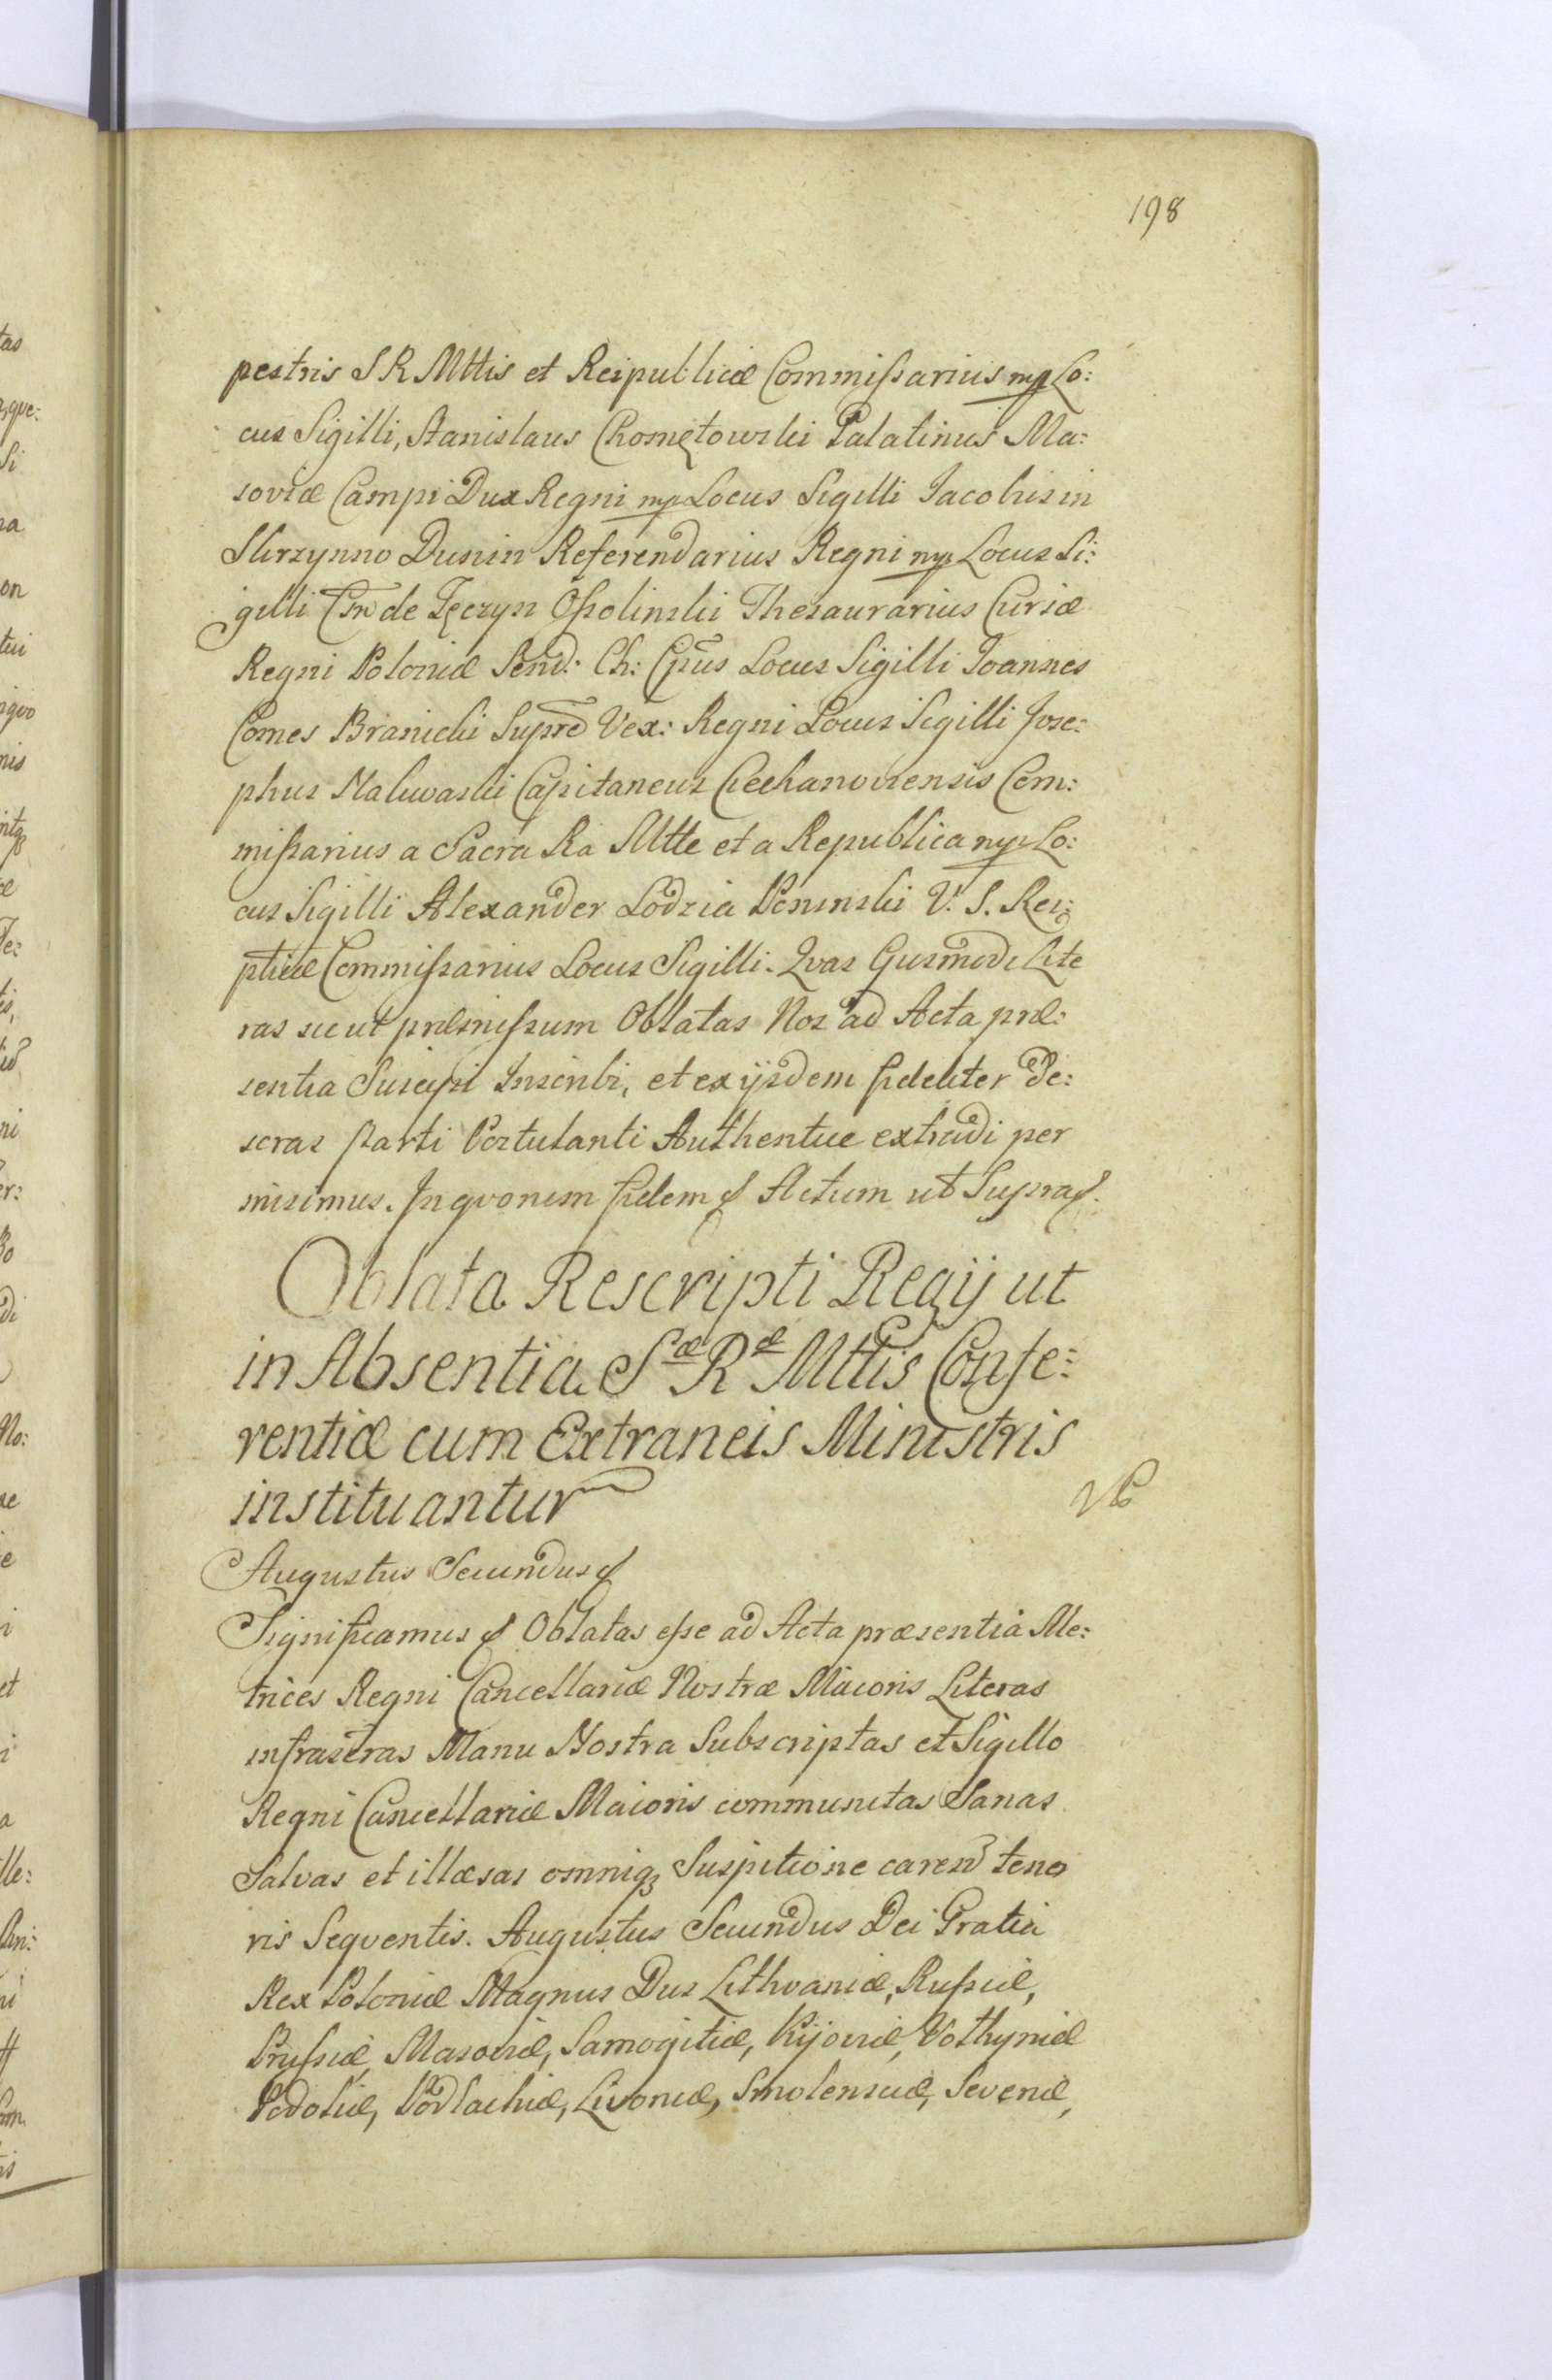 198
pestris S R Mttis et Reipublicæ Commißarius mp Lo:
cus Sigilli, Stanislaus Chomętowski Palatinus Ma:
soviæ Campi Dux Regni mp Locus Sigilli Jacobus in
Skrzynno Dunin Referendarius Regni mp Locus Si:
gilli de Tęczyn Oßolinski Thesaurarius Curiæ
Regni Poloniæ Send: Ch: Cpus Locus Sigilli Joannes
Comes Branicki Supre Vex: Regni Locus Sigilli Jose:
phus Nakwaski Capitaneus Ciechanoviensis Com:
mißarius a Sacra Ra Mtte et a Republica mp Lo:
cus Sigilli Alexander Lodzia Poninski V. S. Rei:
pticæ Commißarius Locus Sigilli. Qvas Eiusmodi Lite
ras sicut præmißum Oblatas Nos ad Acta præ:
sentia Suscipi Inscribi, et ex ijsdem fideliter De:
scras Parti Postulanti Authentice extradi per
misimus. In qvorum fidem & Actum ut Supra &.
Oblata Rescripti Regij ut
in Absentia Sæ Ræ Mttis Confe:
rentiæ cum Extraneis Ministris
instituantur
Augustus Secundus &
Significamus & Oblatas eße ad Acta præsentia Me:
trices Regni Cancellariæ Nostræ Maioris Literas
infrascras Manu Nostra Subscriptas et Sigillo
Regni Cancellariæ Maioris communitas Sanas
Salvas et illæsas omniq3 Suspitione caren teno
ris Seqventis. Augustus Secundus Dei Gratia
Rex Poloniæ Magnus Dux Lithvaniæ, Rußiæ,
Prußiæ, Masoviæ, Samogitiæ, Kijoviæ, Volhyniæ
Podoliæ, Podlachiæ, Livoniæ, Smolensciæ, Severiæ,